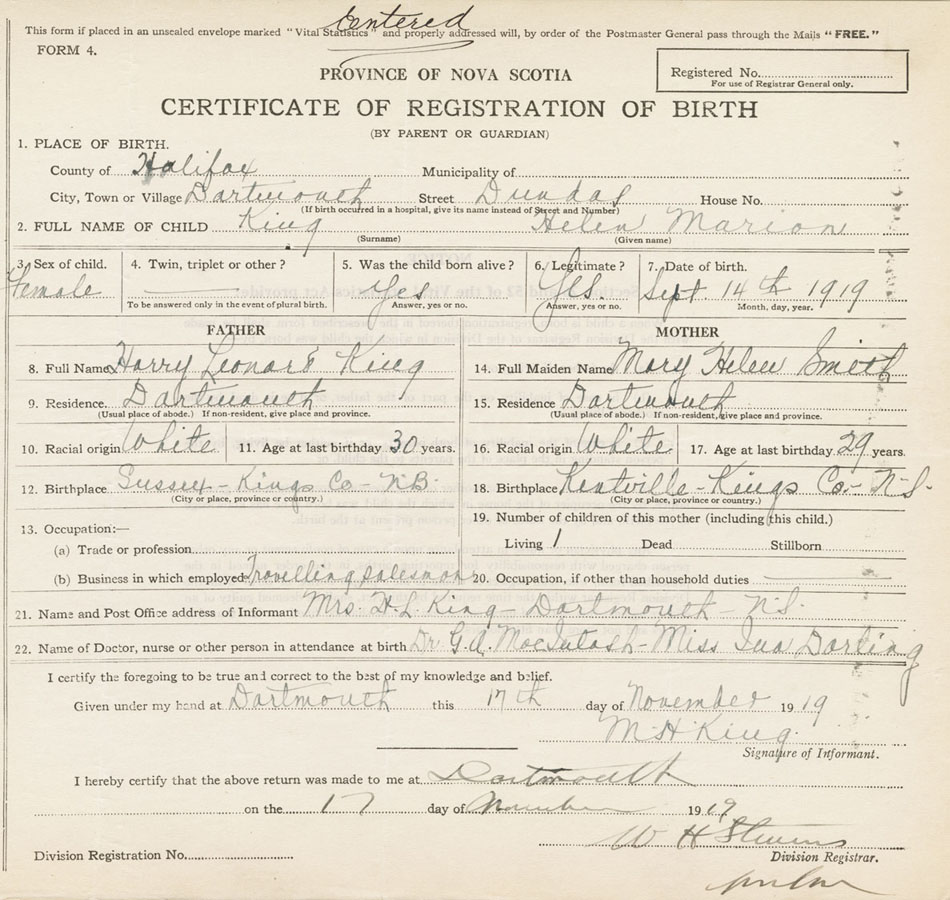 Entered
This form if placed in an unsealed envelope marked "Vital Statistics" and properly addressed will, by order of the Postmaster General pass through the Mails "FREE."
FORM 4.
PROVINCE OF NOVA SCOTIA
Registered No.
For use of Registrar General only.
CERTIFICATE OF REGISTRATION OF BIRTH
(BY PARENT OR GUARDIAN)
1. PLACE OF BIRTH.
County of Halifax Municipality of
City, Town or Village Dartmouth Street Dundas House No.
(If birth occurred in a hospital, give its name instead of Street and Number)
2. FULL NAME OF CHILD King Helen Marion
(Surname) (Given name)
3. Sex of child. 4. Twin, triplet or other? 5. Was the child born alive? 6. Legitimate? 7. Date of birth.
Female Yes Yes. Sept. 14th 1919
To be answered only in the event of plural birth. Answer, yes or no. Answer, yes or no. Month, day, year.
FATHER MOTHER
8. Full Name Harry Leonard King 14. Full Maiden Name Mary Helen Smith
9. Residence. Dartmouth 15. Residence Dartmouth
(Usual place of abode.) If non-resident, give place and province. (Usual place of abode.) If non-resident, give place and province.
10. Racial origin White 11. Age at last birthday 30 years. 16. Racial origin White 17. Age at last birthday 29 years.
12. Birthplace Sussex - Kings Co - N.B. 18. Birthplace Kentville - Kings Co. - N.S.
(City or place, province or country.) (City or place, province or country.)
13. Occupation:— 19. Number of children of this mother (including this child.)
(a) Trade or profession Living 1 Dead Stillborn
(b) Business in which employed Travelling salesman 20. Occupation, if other than household duties
21. Name and Post Office address of Informant Mrs. H. L. King - Dartmouth - N.S.
22. Name of Doctor, nurse or other person in attendance at birth Dr. G. A. MacIntosh - Miss Ina Darling
I certify the foregoing to be true and correct to the best of my knowledge and belief.
Given under my hand at Dartmouth this 17th day of November 1919
M. H. King
Signature of Informant.
I hereby certify that the above return was made to me at Dartmouth
on the 17 day of November 1919
W H Stevens
Division Registration No. Division Registrar.